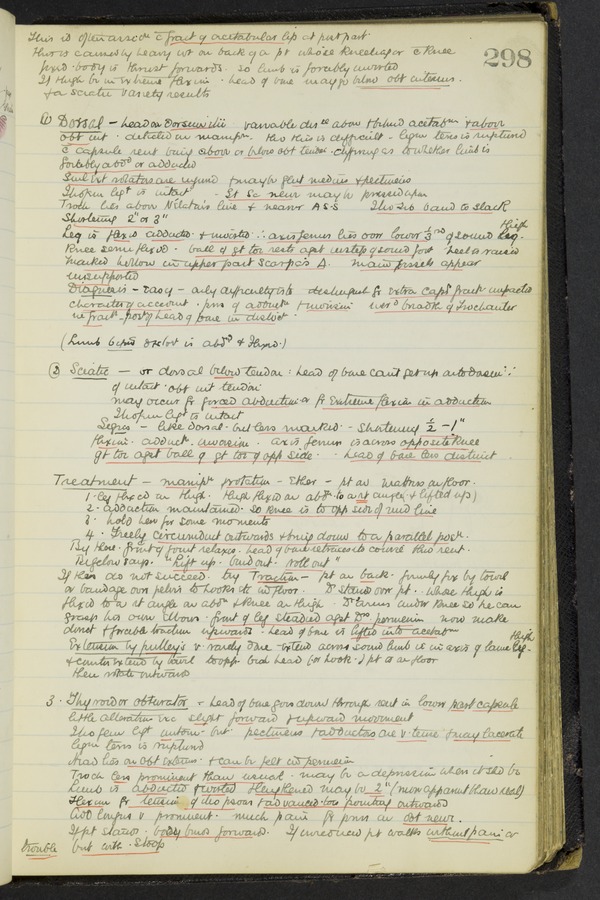 This is often assoc. c̄ fract of acetabular lip at post part
This is caused by heavy wt on back of a pt whose kneeling or c̄ knee
fixed. body is thrust forwards. so limb is forcibly inverted
If thigh be in extreme flexion. head of bone may go below obt internus.
& a sciatic variety results
298
① Dorsal – Head on dorsum ilii variable dist.ce above & behind acetabm & above
obt int
c̄ capsule rent being above or below obt tendon
forcibly abdd or adducted
Small ext rotators are injured & maybe glut medius & pectineus
Iliofem ligt is intact – Gt Sc nerve may be pressed upon
Troch lies above Nelaton's line & nearer A.S.S Ilio tib band to slack
Shortening 2" or 3"
Leg is flexd adducted & inverted ∴ axis femur lies over lower ⅓rd of sound thigh
Knee semi flexed. ball of gt toe rests agst instep of sound foot heel is raised
marked hollow in upper part Scarpa's Δ. main vessels appear
unsupported
Diagnosis – easy – only difficulty is to distinguish fr extra caps fract impacted
character of accident. pres of adductn & inversion incrd breadth of Trochanter
in fract. posn of head of bone in disloct.
(Limb before disloct is abdd & flexed.)
② Sciatic – or dorsal below tendon: head of bone can't get up onto dorsum ∵
of intact obt int tendon
may occur fr forced abduction or fr extreme flexion in adduction
Iliofem ligt is intact
Signs – like dorsal but less marked. – shortening ½ – 1"
flexion. adduct. inversion. axis femur is across opposite knee
gt toe agst ball of gt toe of opp side. head of bone less distinct
Treatment – manipn & rotation – Ether – pt on mattress on floor.
1. leg flexed on thigh. thigh flexed on abdn to a rt angle & lifted up)
2. adduction maintained so knee is to opp side of mid line
3. hold here for some moments
4. Freely circumduct outwards & bring down to a parallel posn.
By these. front of joint relaxes. head of bone retraces its course thro rent.
Bigelow says. "Lift up. bend out. roll out"
If this do not succeed. try Traction – pt on back. firmly fix by towel
or bandage over pelvis to hooks etc in floor. Dr stands over pt. whose thigh is
flexed to a rt angle on abdn & knee on thigh. Dr's arm under knee so he can
grasp his own elbow. front of leg steadied agst Drs perineum now make
direct & forcible traction upwards. head of bone is lifted into acetabm
Extension by pulleys v. rarely done. extend across sound limb ie in axis of lame thigh
& counter extend by towel to opp bed head (or hook.) pt is on floor
then rotate outwards
3. Thyroid or obturator – Head of bone goes down through rent in lower part capsule
little alteration exc slight forward & upward movement
Iliofem ligt intact. but pectineus & adductors are v. tense & may lacerate
ligm teres is ruptured
head lies on obt externus & can be felt in perineum
Troch less prominent than usual. may be a depression where it shd be
Limb is abducted & everted & lengthened maybe 2" (more apparent than real)
Flexion fr tension of ilio psoas & advanced toes pointing outward
add longus v prominent. much pain fr press on obt nerv.
If pt stands. body bends forward. If unreduced pt walks without pain or
trouble but with stoop